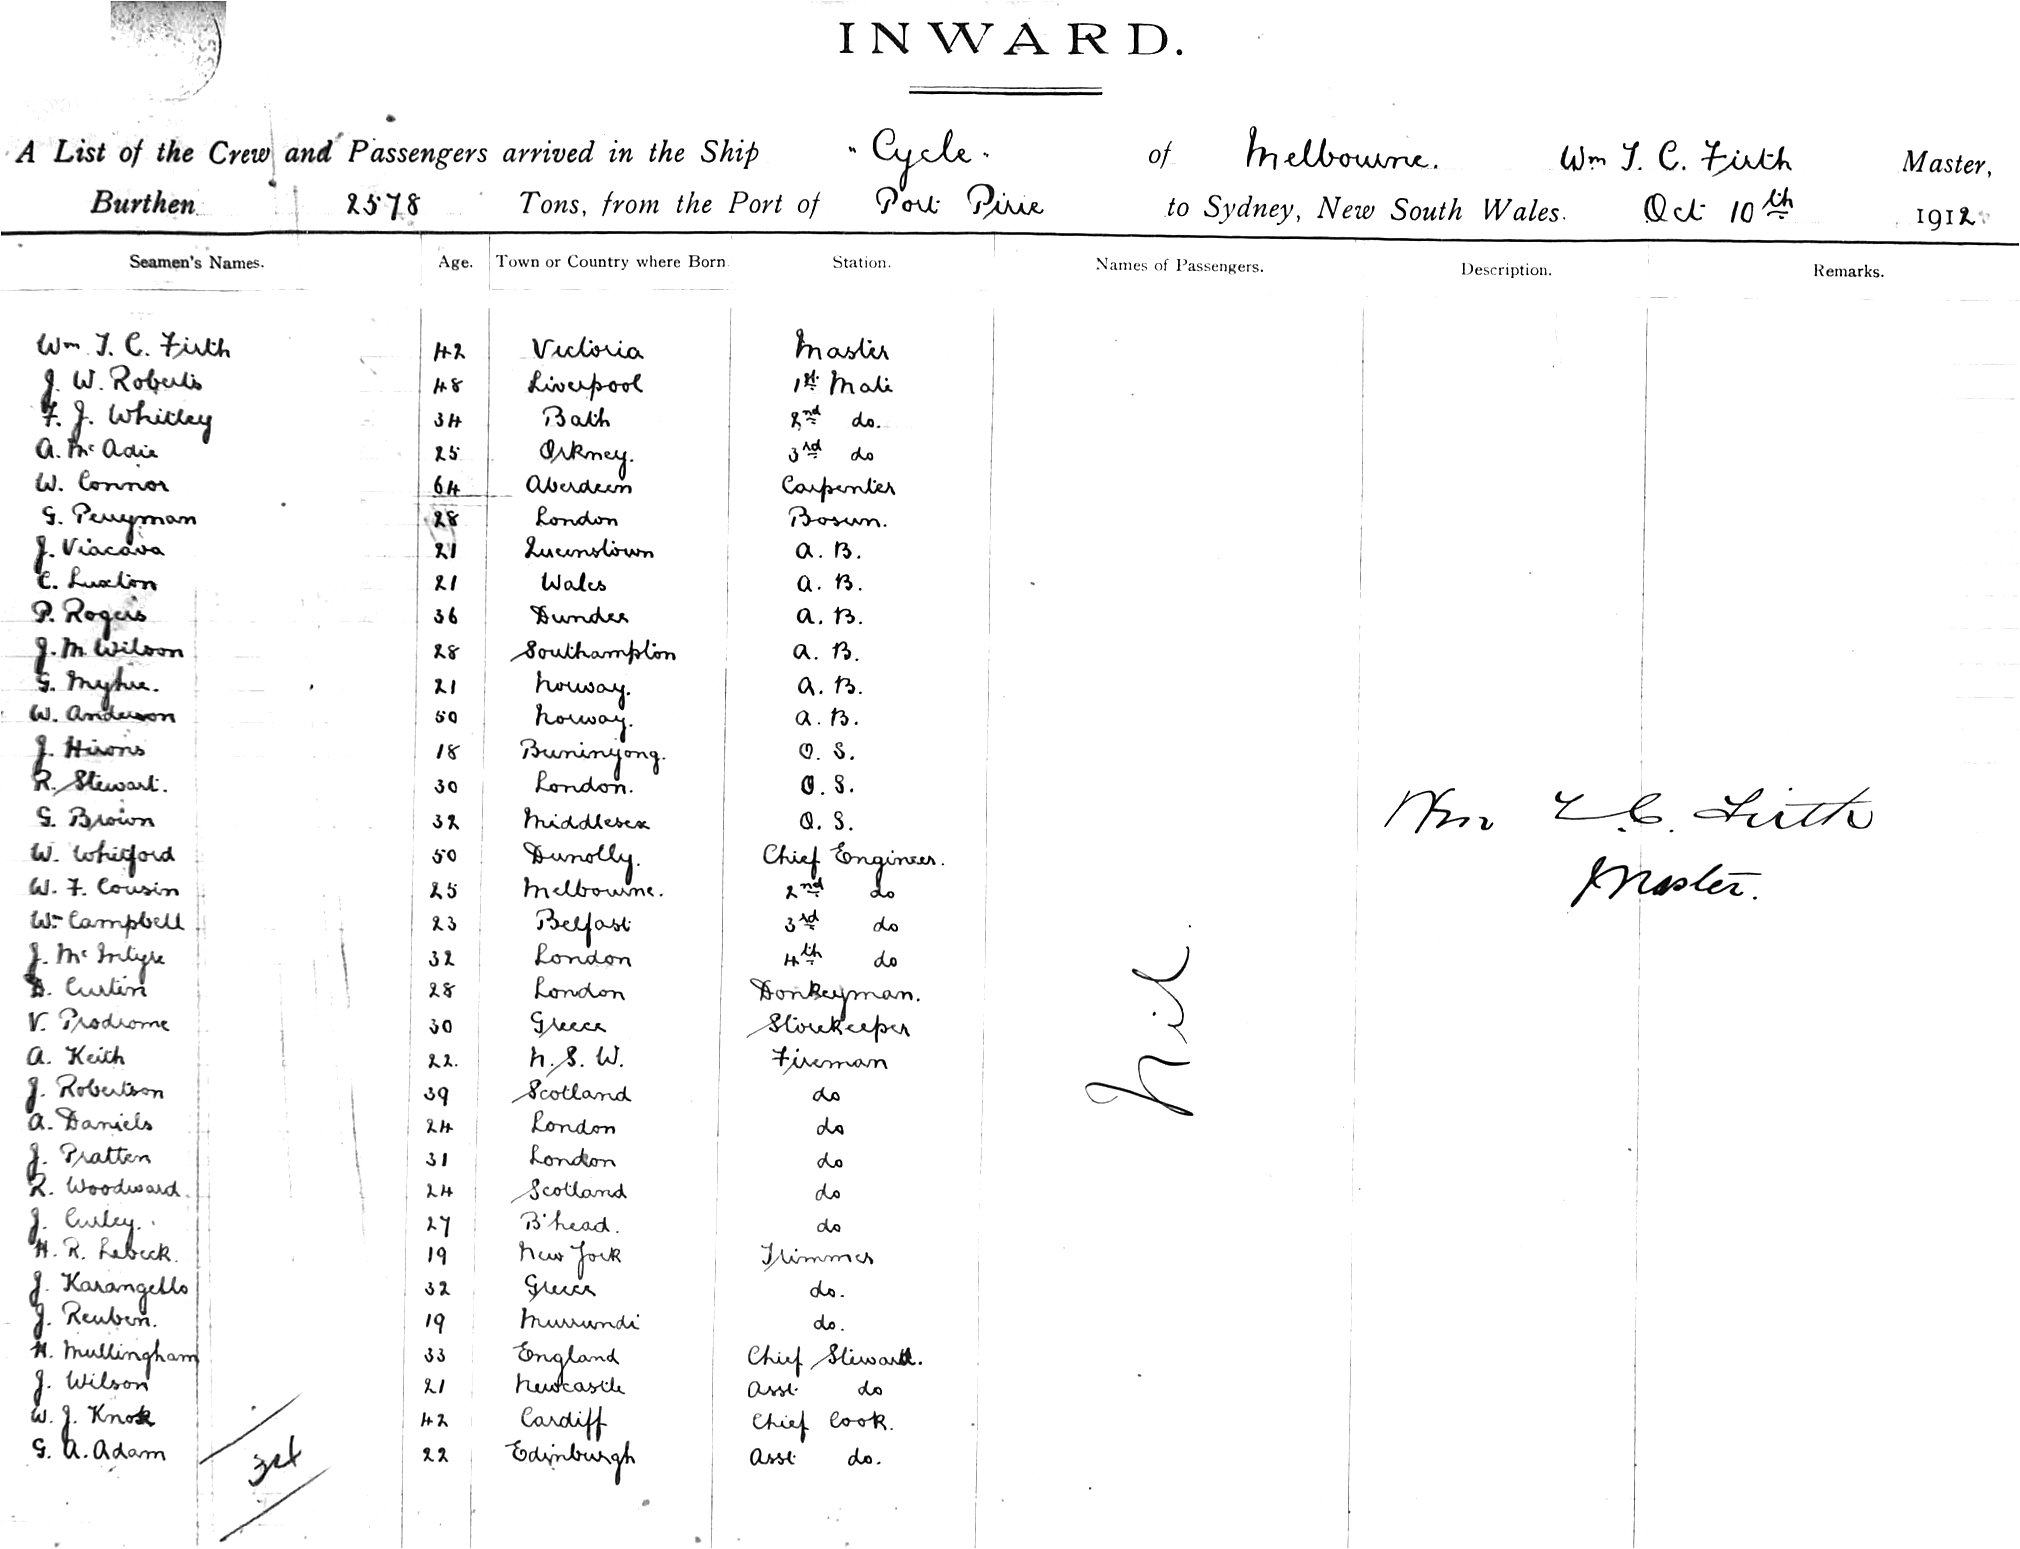 INWARD.
A List of the Crew and Passengers arrived in the Ship "Cycle" of Melbourne. Wm T. C. Firth Master,
Burthen 2578 Tons, from the Port of Port Pirie to Sydney, New South Wales. Oct 10th 1912
Seamen's Names. Age. Town or Country where Born Station. Names of Passengers. Description. Remarks.
Wm T. C. Firth 42 Victoria Master
J. W. Roberts 48 Liverpool 1st Mate
F. J. Whitley 34 Bath 2nd do.
A. McAdie 25 Orkney. 3rd do
W. Connor 64 Aberdeen Carpenter
G. Perryman 28 London Bosun.
J. Viacava 21 Queenstown A. B.
C. Luxton 21 Wales A. B.
P. Rogers 36 Dundee A. B.
J. M. Wilson 28 Southampton A. B.
G. Myhre. 21 Norway. A. B.
W. Anderson 50 Norway. A. B.
J. Hirons 18 Buninyong. O. S.
R. Stewart. 30 London. O. S.
G. Brown 32 Middlesex O. S.
W. Whitford 50 Dunolly. Chief Engineer.
W. F. Cousin 25 Melbourne. 2nd do
Wm Campbell 23 Belfast 3rd do
J. McIntyre 32 London 4th do
D. Curtin 28 London Donkeyman.
V. Prodrome 30 Greece Storekeeper
A. Keith 22. N. S. W. Fireman
J. Robertson 39 Scotland do
A. Daniels 24 London do
J. Pratten 31 London do
R. Woodward. 24 Scotland do
J. Curley. 27 B'head. do
H. R. Labeck. 19 New York Trimmer
J. Karangello 32 Greece do.
J. Reuben. 19 Murrundi do.
H. Mullingham 33 England Chief Steward.
J. Wilson 21 Newcastle Asst do
W. J. Knox 42 Cardiff Chief Cook.
G. A. Adam 22 Edinburgh Asst do.
34
Nil.
Wm T. C. Firth
Master.